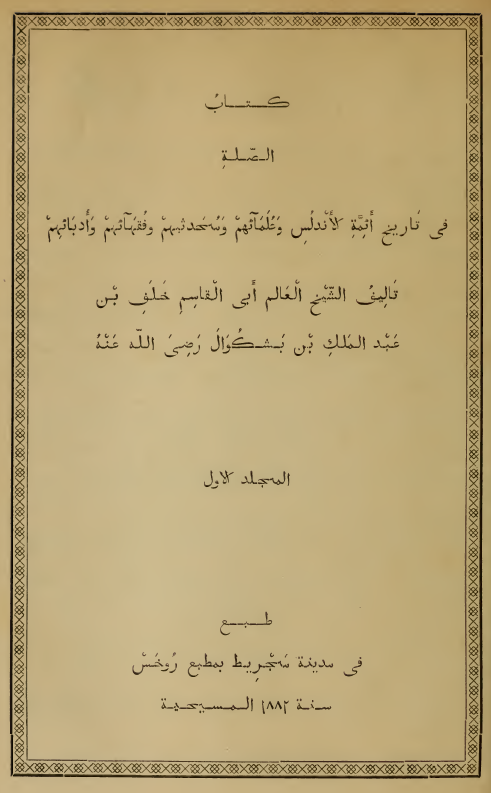 كتاب
الصّلة
فى تَاريخ أَئِمَّةِ الأَنْدلُس وَعُلَمَآئهِمْ وَمُحَدثيهِمْ وفُقَهَآئهِمْ وَأُدَبَائِهِمْ
تَالِيفُ الشّيْخِ الْعَالم أَبى الْقاسِم خَلَفِ بْن
عَبْد المَلكِ بْن بَشكُوَالُ رَضِىَ اللّه عَنْهُ
المجلد الاول
طبع
فى مدينة مَجْرِيط بمطبع رُوخَسْ
سنة ١٨٨٢ المسيحية